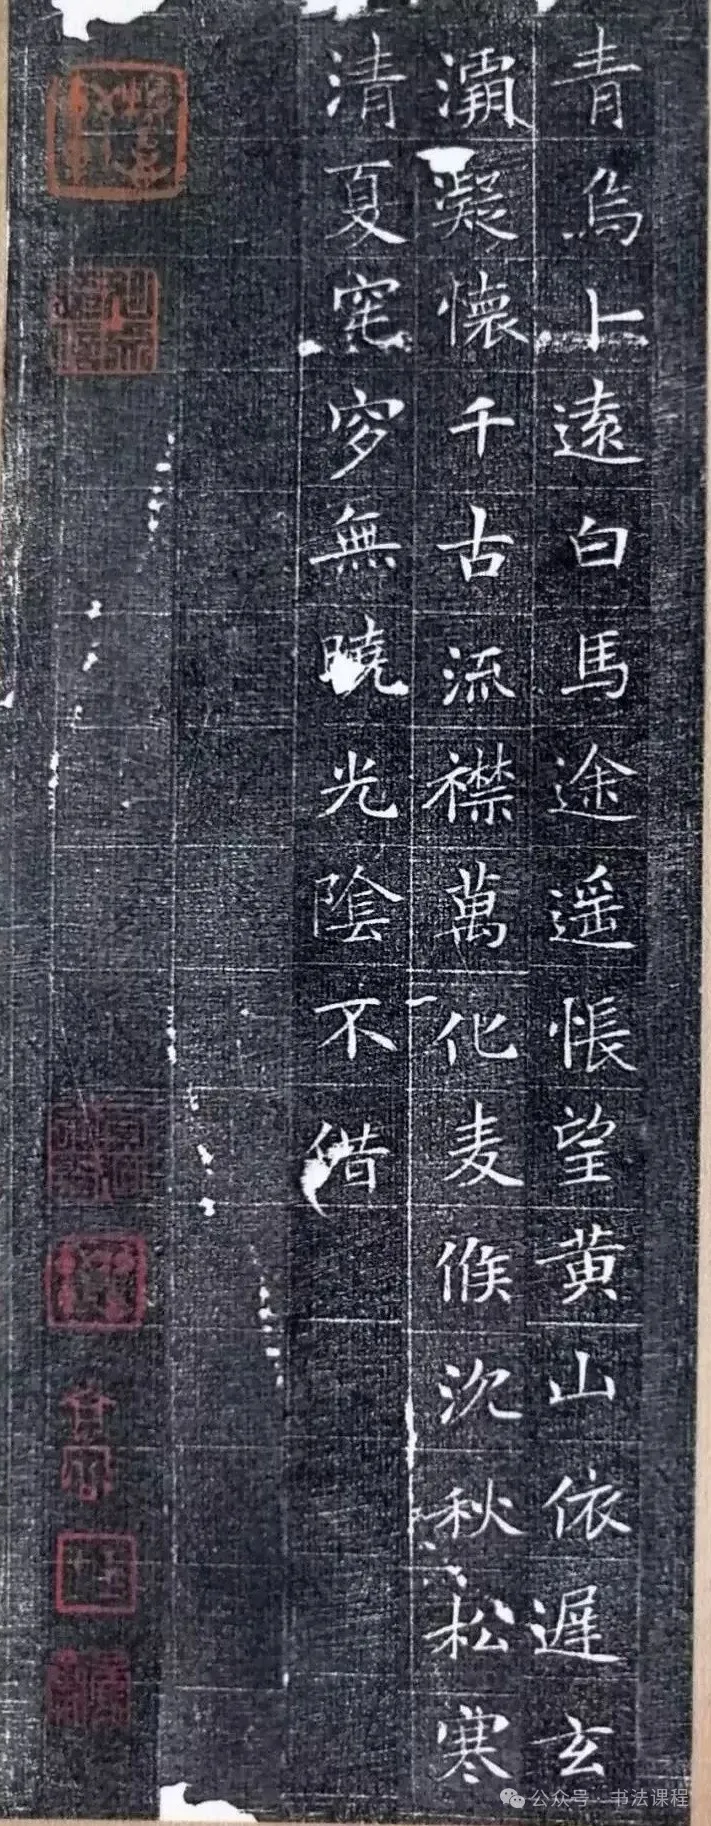 青烏卜遠白馬途遥悵望黄山依遲玄
灞凝懷千古流襟萬化麦候沉秋松寒
清夏窀穸無曉光陰不借
公众号·书法课程